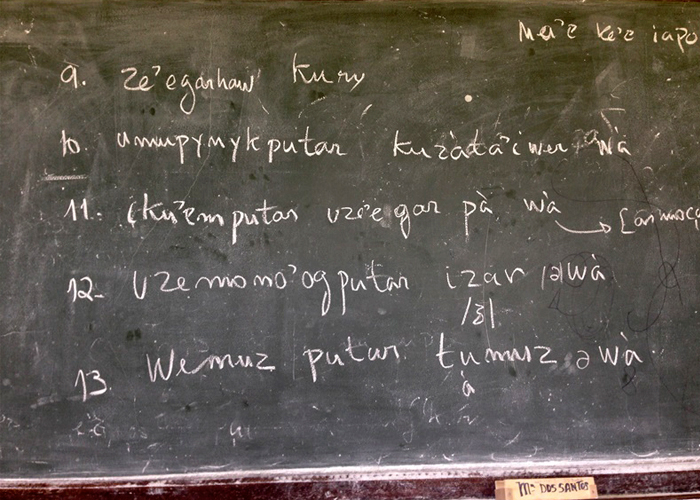 Ma'e ke'e iapo
9. ze'egarhaw kury
10. umupynykputar kuzàtà'i wer wà
11. iku'emputar uze'egar pà wà
12- Uzemono'ogputar izar /ə/wà
/ʒ/
13. Wemuz putar tumuz ə wà
à
Mª DOS SANTOS